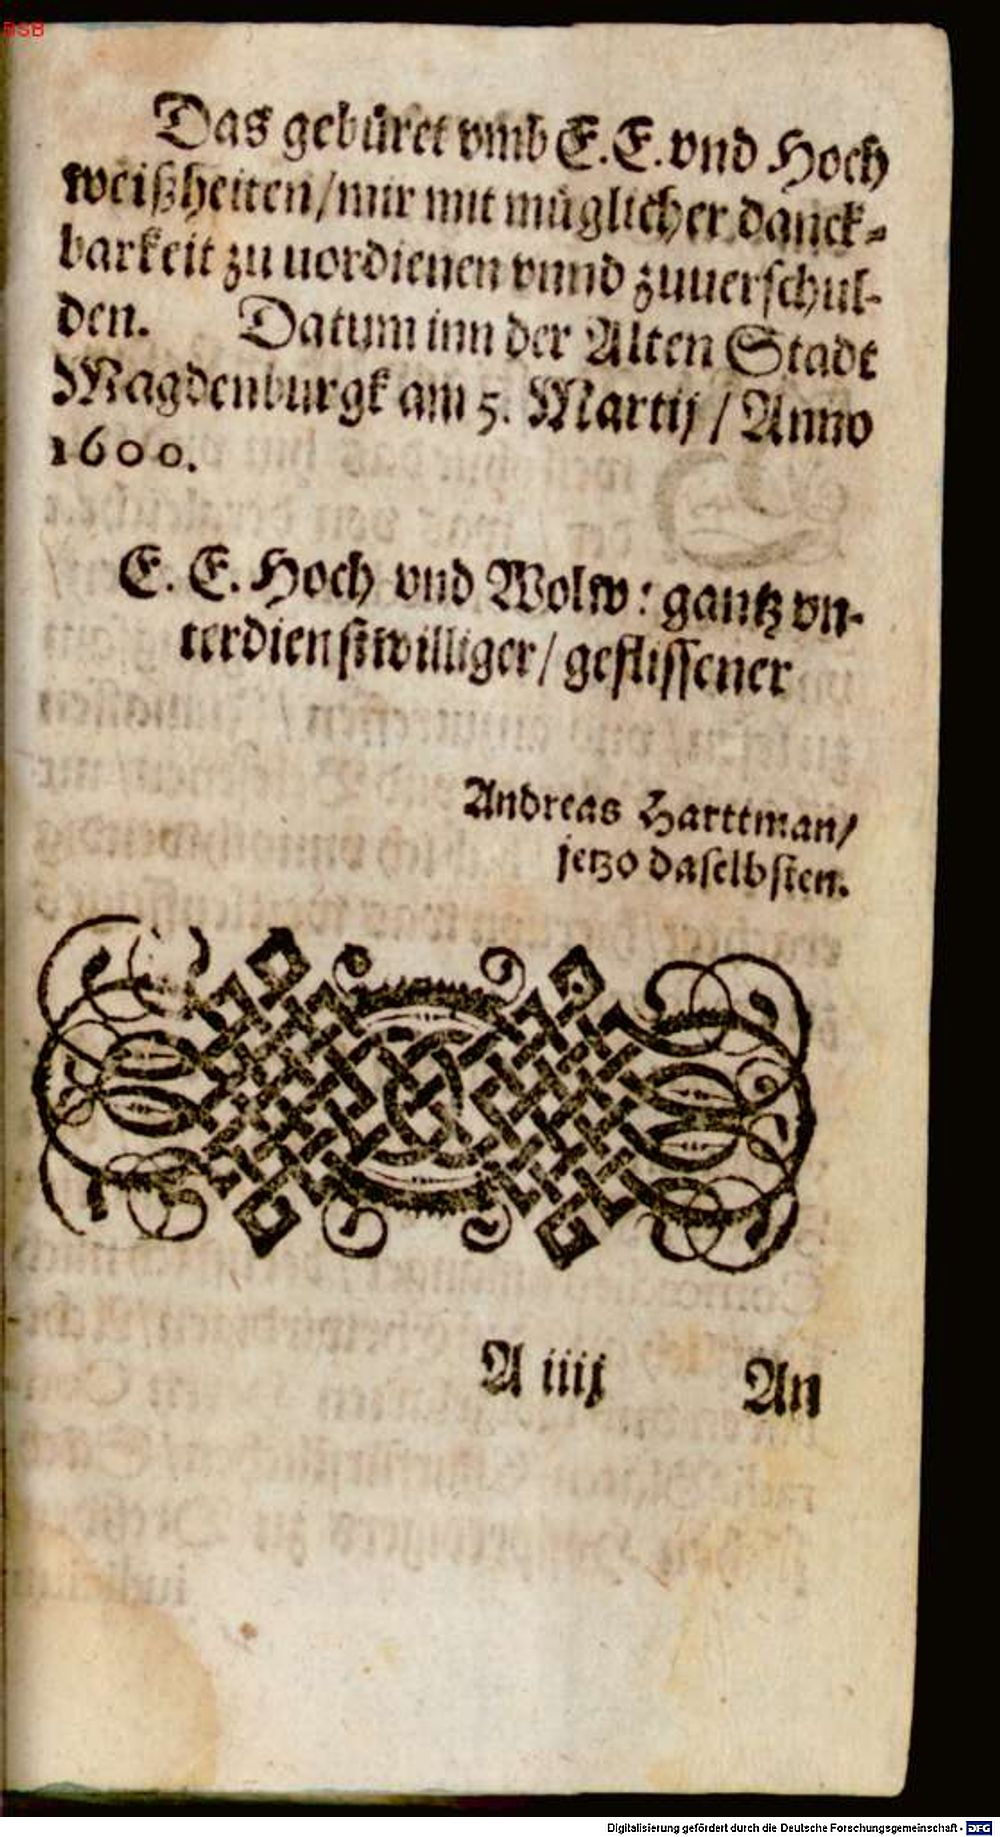 BSB
Das gebüret vmb E.E. vnd Hoch
weißheiten/mir mit müglicher danck-
barkeit zu uordienen vnnd zuuerschul-
den. Datum inn der Alten Stadt
Magdenburgk am 5. Martij / Anno
1600.
E. E. Hoch vnd Wolw: gantz vn-
terdienstwilliger/ geflissener
Andreas Harttman/
jetzo daselbsten.
A iiij An
Digitalisierung gefördert durch die Deutsche Forschungsgemeinschaft - DFG